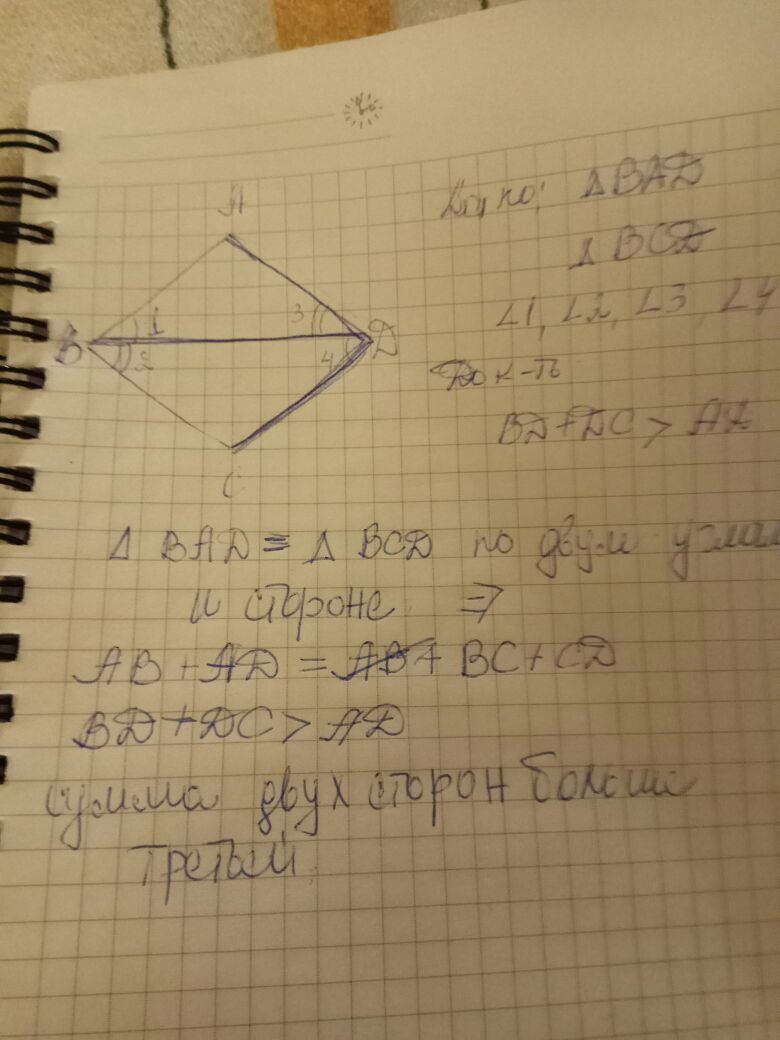 A
B
1
2
3
4
D
C
Дано: Δ BAD
Δ BCD
∠1, ∠2, ∠3, ∠4
Док-ть
BD+DC > AD
Δ BAD = Δ BCD по двум углам
и стороне ⇒
AB + AD = AB+ BC+CD
BD+DC > AD
сумма двух сторон больше
третьей.